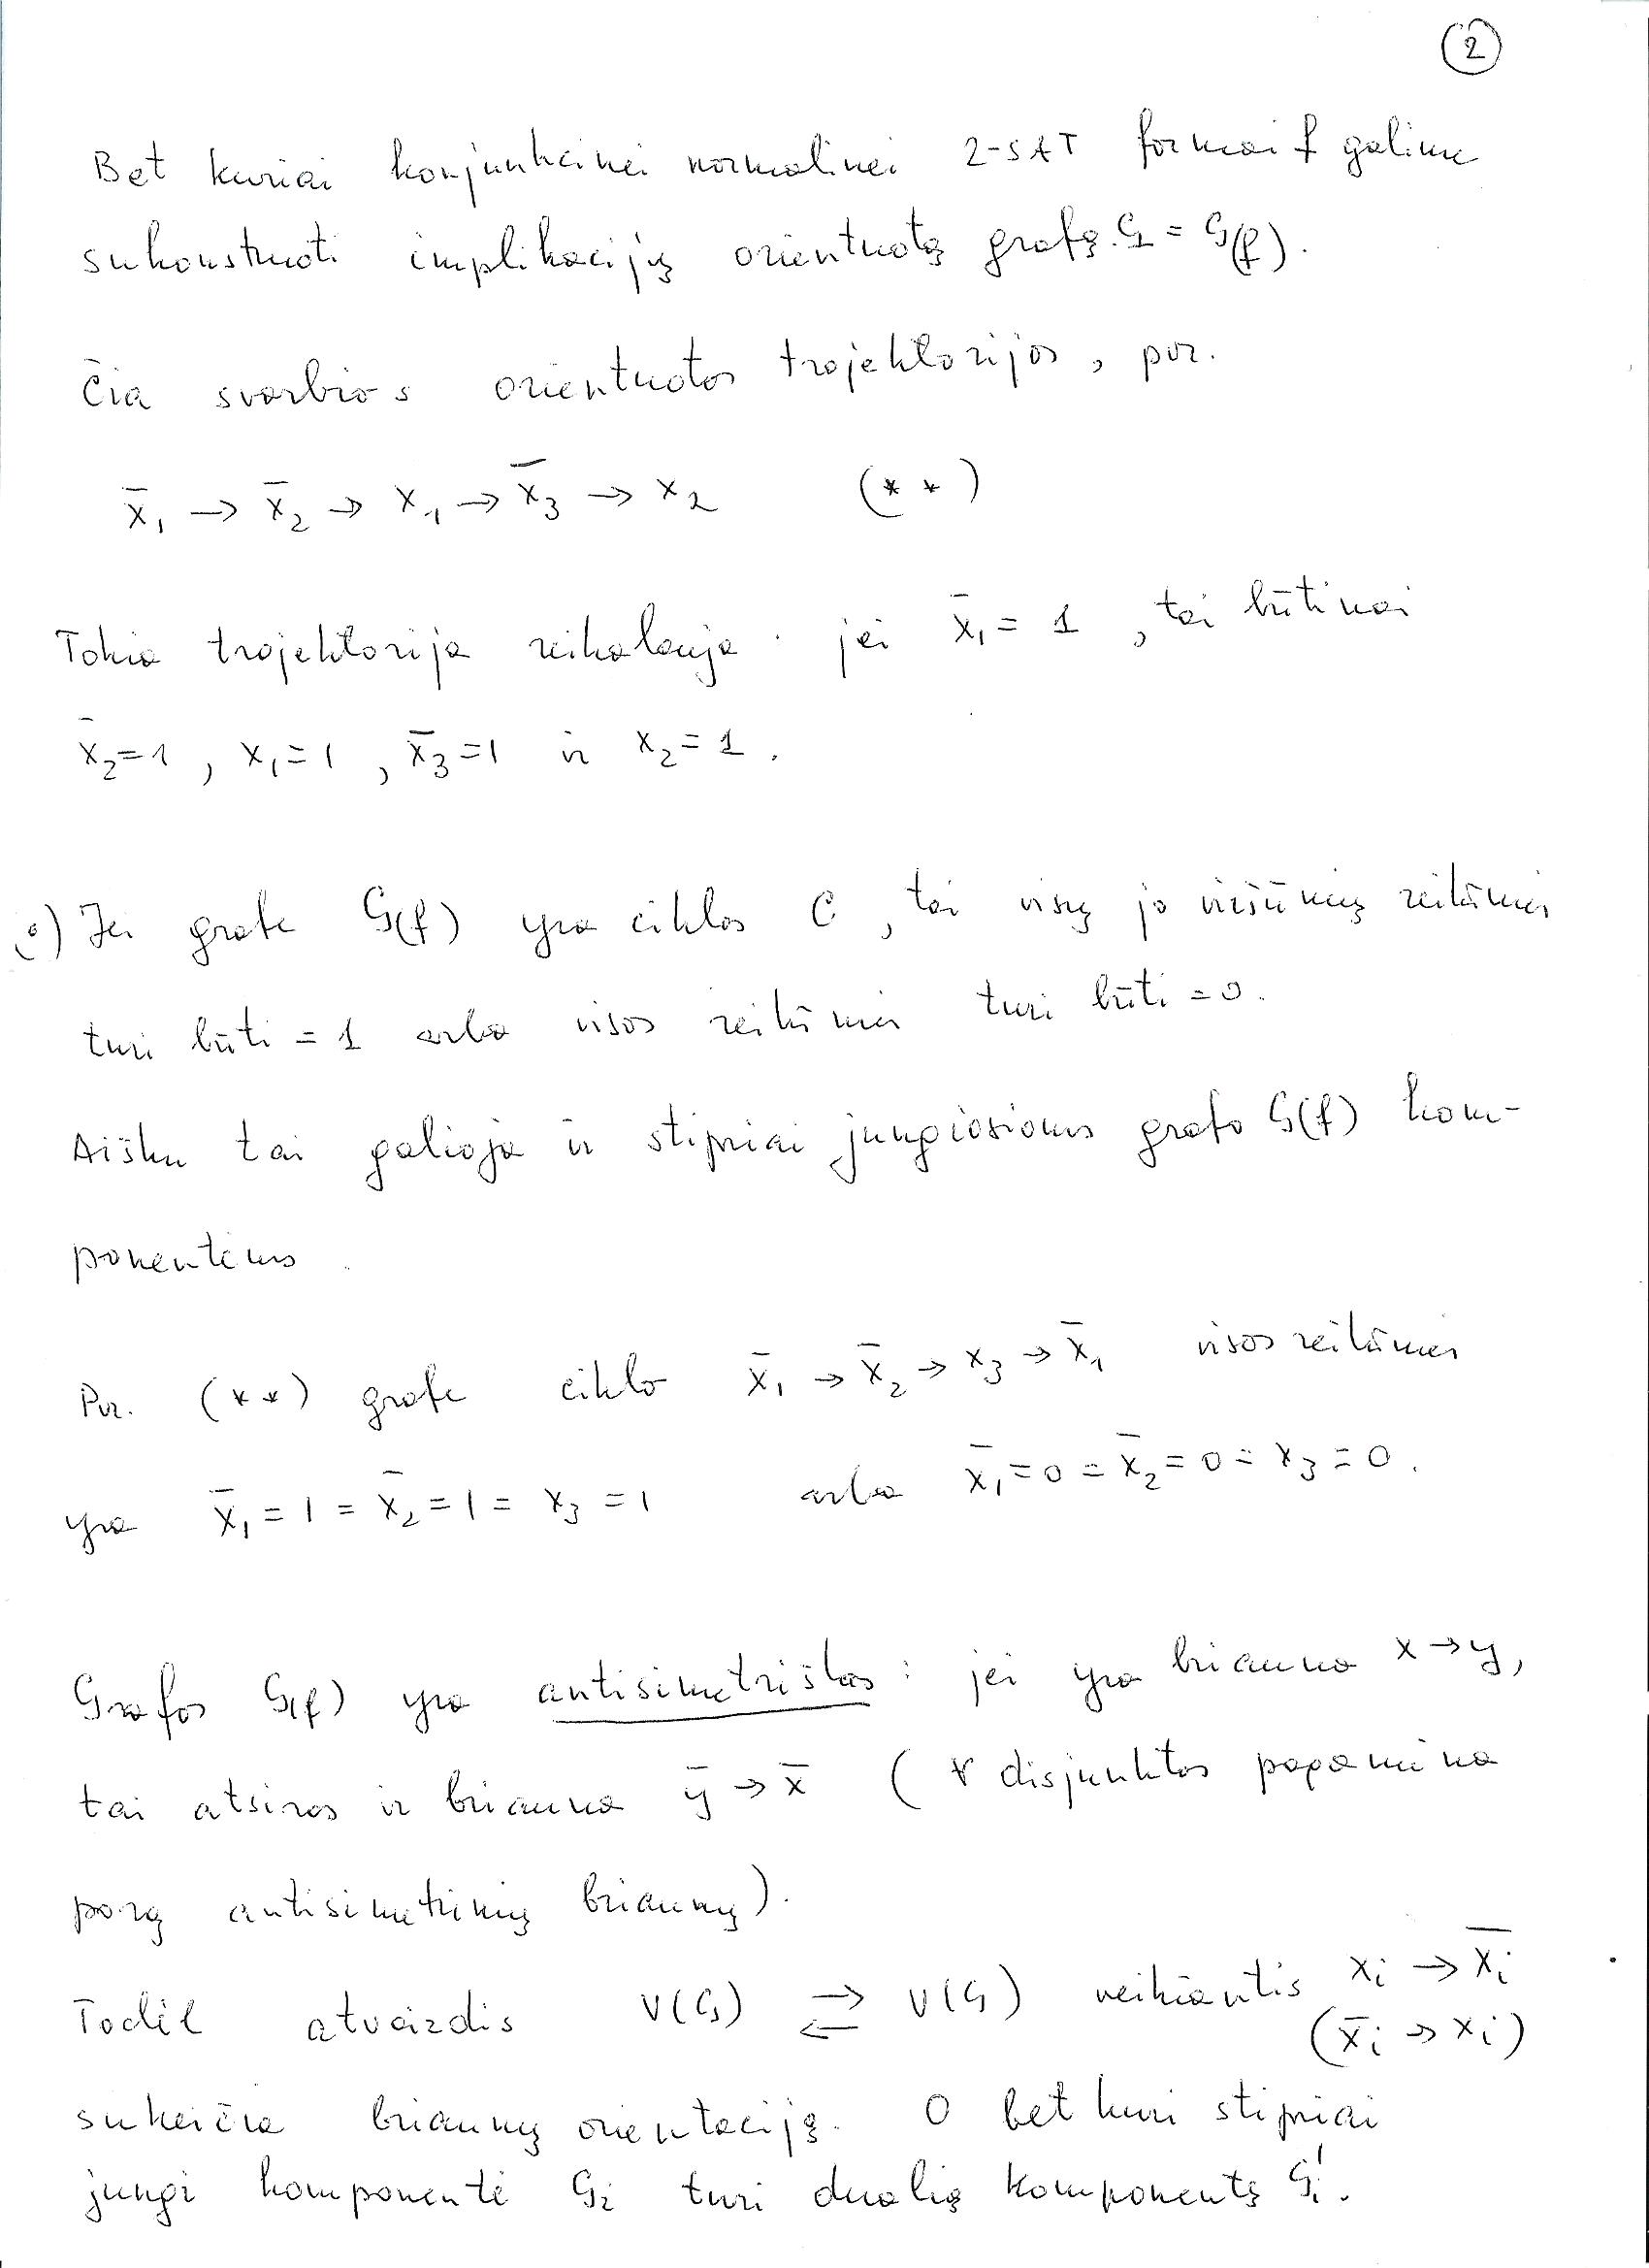 2
Bet kuriai konjunkcinei normalinei 2-SAT formai f galime
sukonstruoti implikacijų orientuotą grafą. G = G(f).
Čia svarbios orientuotos trajektorijos, pvz.
x̄₁ → x̄₂ → x₁ → x̄₃ → x₂ (**)
Tokia trajektorija reikalauja: jei x̄₁ = 1, tai būtinai
x̄₂=1, x₁=1, x̄₃=1 ir x₂=1.
Jei grafe G(f) yra ciklas C, tai visų jo viršūnių reikšmės
turi būti = 1 arba visos reikšmės turi būti = 0.
Aišku tai galioja ir stipriai jungiosioms grafo G(f) kom-
ponentėms
Pvz. (**) grafe ciklo x̄₁ → x̄₂ → x₃ → x̄₁ visos reikšmės
yra x̄₁ = 1 = x̄₂ = 1 = x₃ = 1 arba x̄₁ = 0 = x̄₂ = 0 = x₃ = 0.
Grafas G(f) yra antisimetriškas: jei yra briauna x → y,
tai atsiras ir briauna ȳ → x̄ (∀ disjunktas pagamina
porą antisimetrinių briaunų).
Todėl atvaizdis V(G) ⇄ V(G) veikiantis xᵢ → x̄ᵢ
(x̄ᵢ → xᵢ)
sukeičia briaunų orientaciją. O bet kuri stipriai
jungi komponentė Gᵢ turi dualią komponentę Gᵢ'.